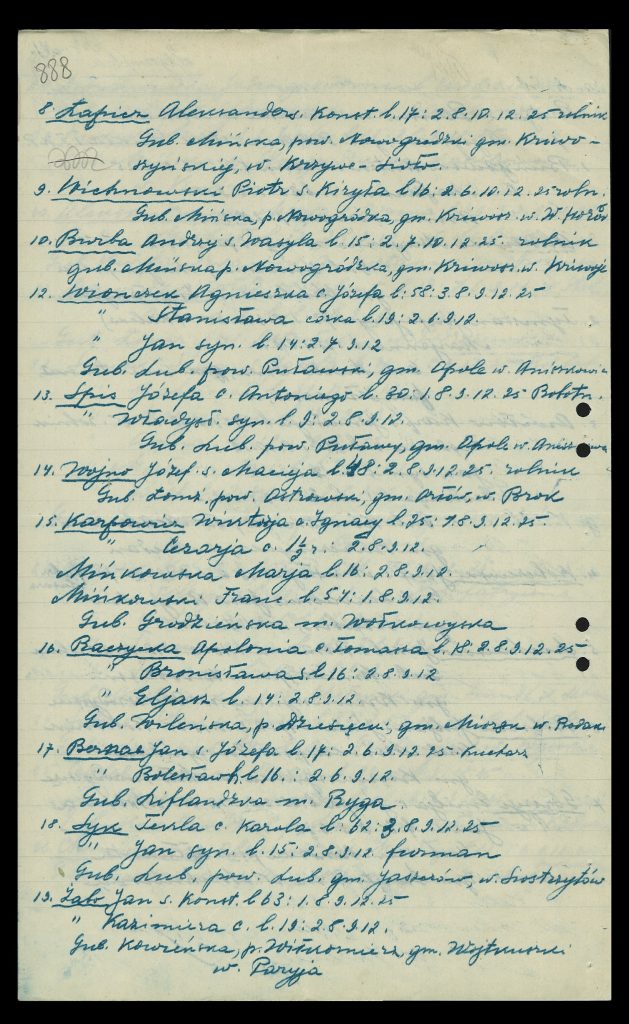 888
8. Łapicz Aleksander s. Konst. l. 17: 2.8.10.12.25 rolnik
Gub. Mińska, pow. Nowogródzki gm. Kriwo-
szyńskiej, w. Krzywe-Sioło.
9. Wichnowski Piotr s. Kiryła l. 16: 2.6.10.12.25 roln.
Gub. Mińska, p. Nowogródzka, gm. Kriwosz. w.
10. Burba Andrzej s. Wasyla l. 15: 2.7.10.12.25. rolnik
gub. Mińska p. Nowogródzka, gm. Kriwosz. w.
12. Wionczek Agnieszka c. Józefa l. 58: 3.8.9.12.25
" Stanisława córka l. 19: 2.6.9.12.
" Jan syn. l. 14: 2.7.9.12
Gub. Lub. pow. Puławski, gm. Opole w.
13. Spis Józefa c. Antoniego l. 30. 1.8.9.12.25
" Władysł. syn. l. 9: 2.8.9.12.
Gub. Lub. pow. Puławy, gm. Opole w.
14. Wojno Józef s. Macieja l. 48: 2.8.9.12.25. rolnik
Gub. Łomż. pow. Ostrowski, gm. Orłów, w. Brok
15. Karpowicz c. Ignacy l. 25: 1.8.9.12.25.
" Cezarja c. 1½ r: 2.8.9.12.
Mińkowska Marja l. 16: 2.8.9.12.
Mińkowski Franc. l. 54: 1.8.9.12.
Gub. Grodzieńska m. Wołkowyska
16. Raczycka Apolonia c. Tomasza l. 18: 2.8.9.12.25
" Bronisława l. 16: 2.8.9.12
" Eljasz l. 14: 2.8.9.12
Gub. Wileńska, p. gm. Miorsk w.
17. Jan s. Józefa l. 17: 2.6.9.12.25. kucharz
" Bolesław l. 16.: 2.6.9.12.
Gub. Liflandzka m. Ryga
18. Syk Tekla c. Karola l. 62: 3.8.9.12.25
" Jan syn. l. 15: 2.8.9.12 furman
Gub. Lub. pow. Lub. gm. Jaszczów, w. Siostrzytów
19. Żabo Jan s. Konst. l. 63: 1.8.9.12.25
" Kazimiera c. l. 19: 2.8.9.12.
Gub. Kowieńska, p. Wiłkomierz, gm.
w. Paryja